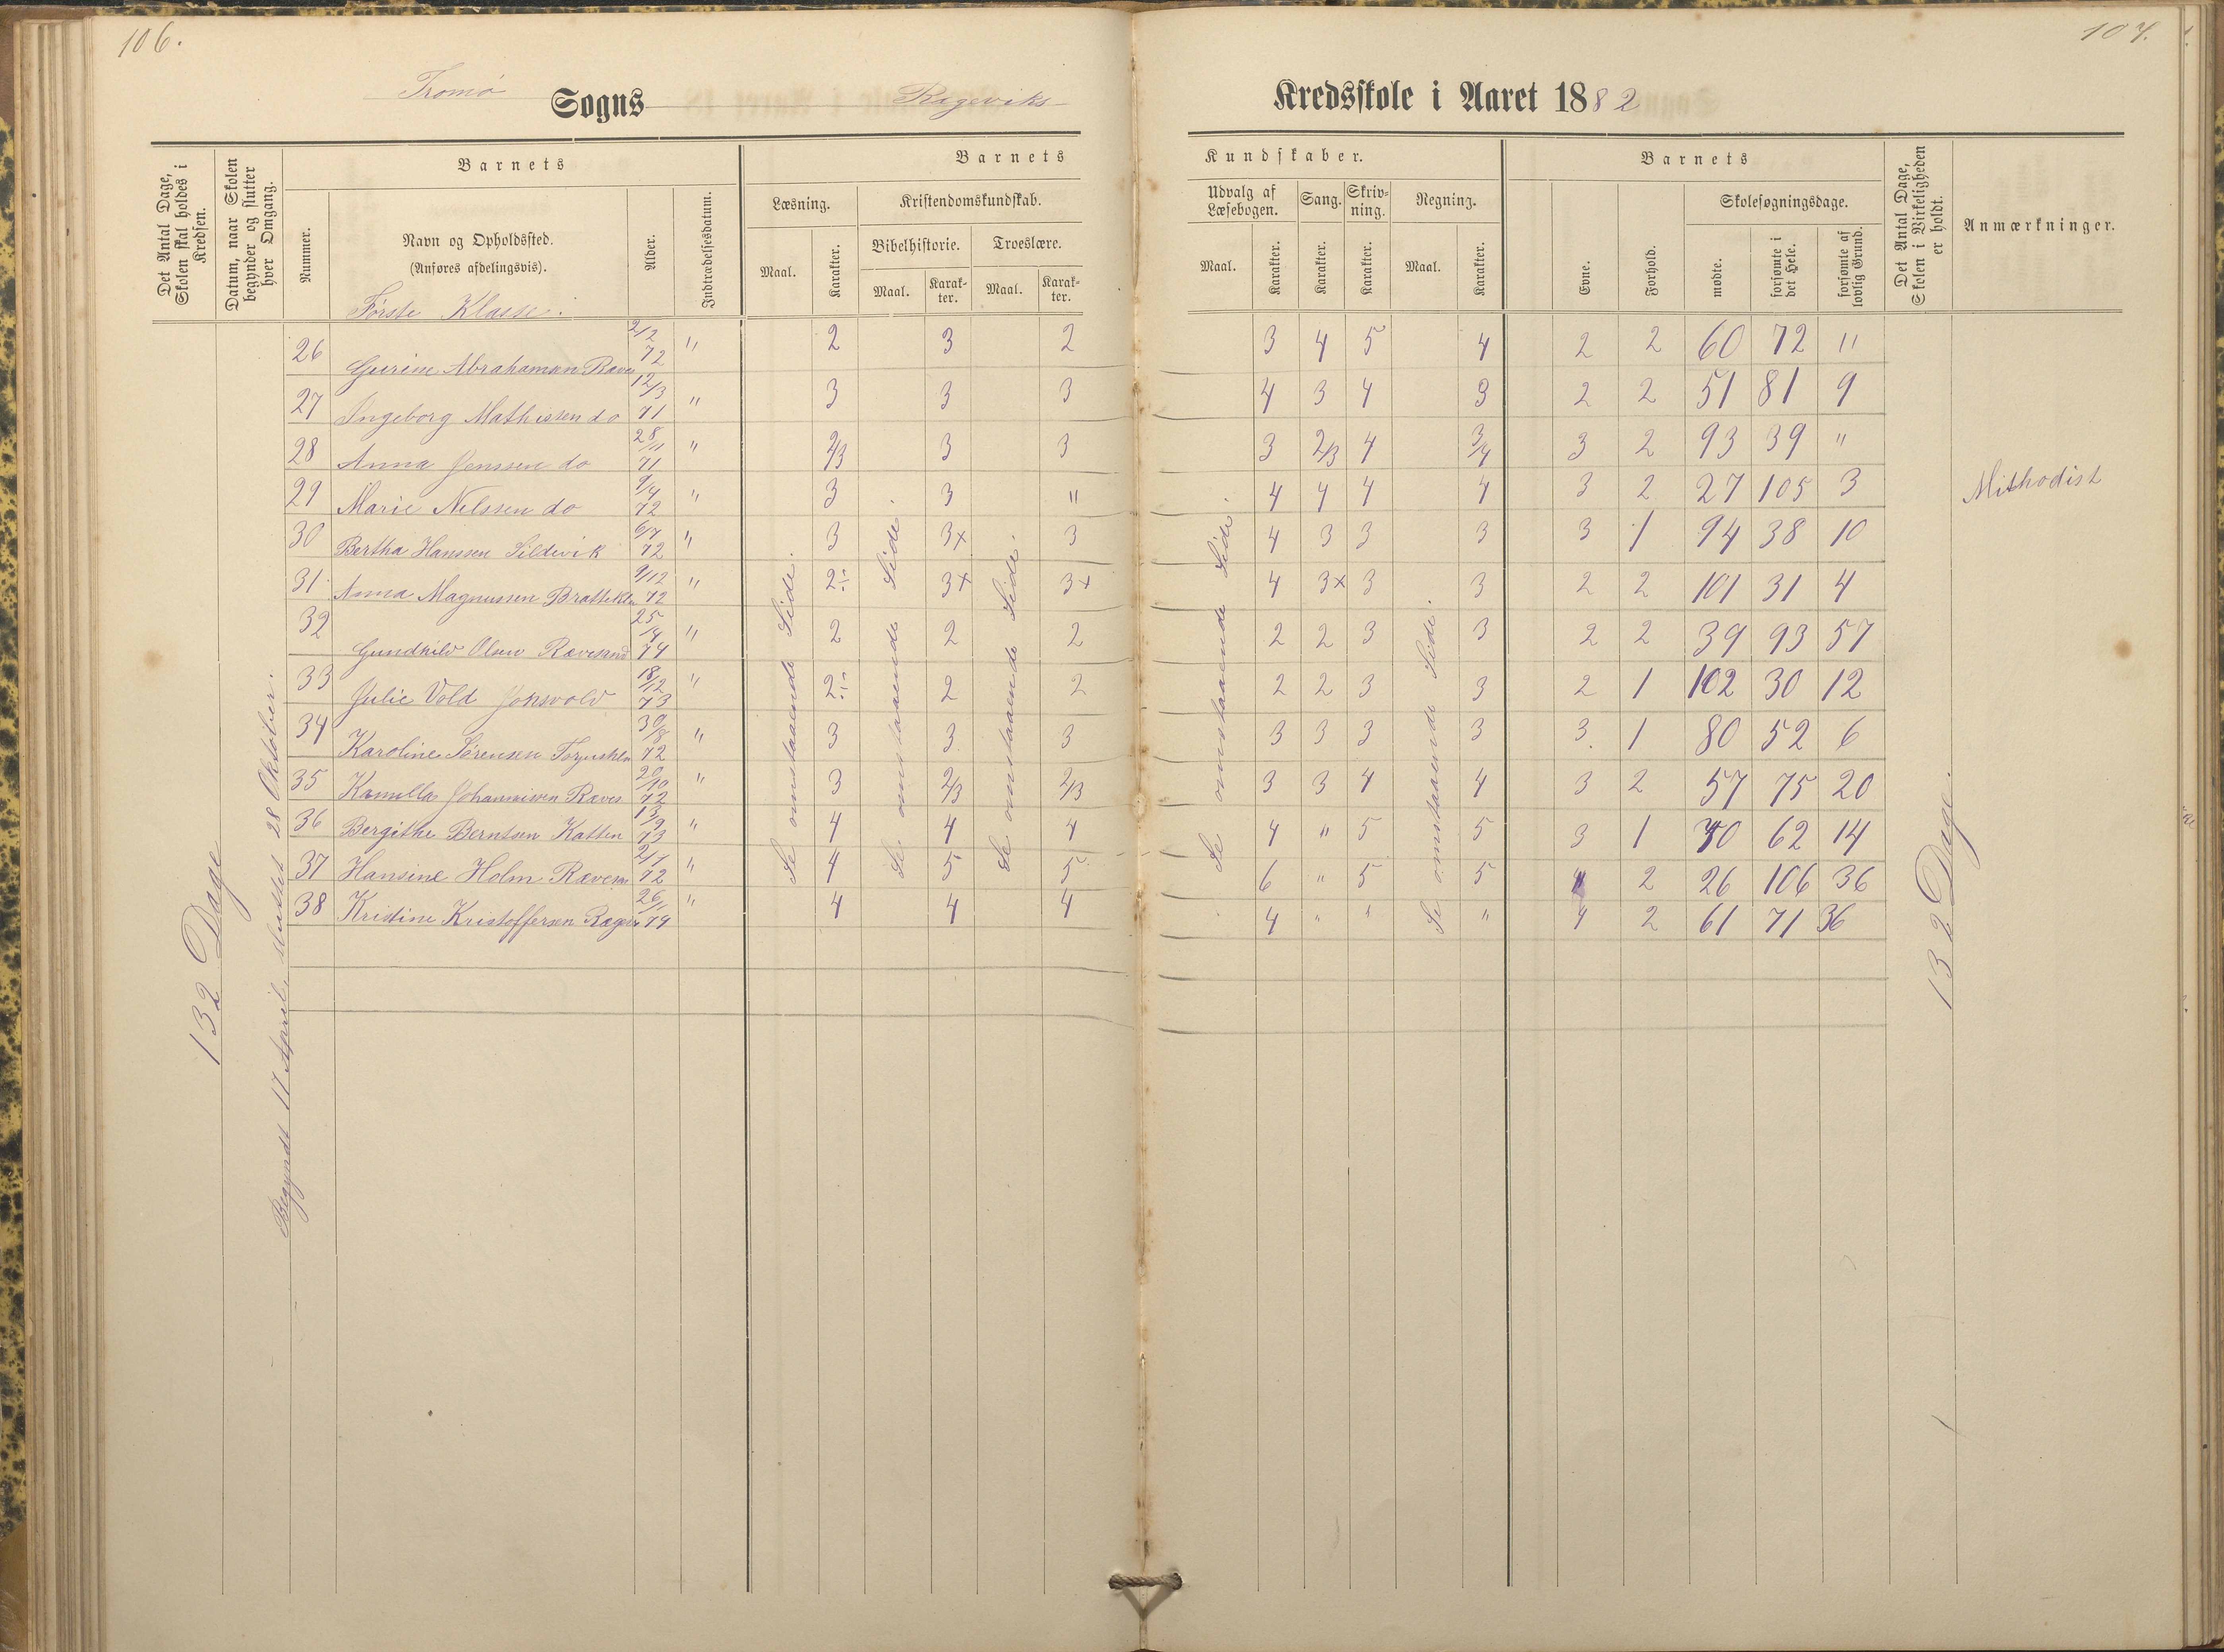 106.
107.
Tromø Sogns Rægeviks Kredsskole i Aaret 1882
Det Antal Dage, Skolen skal holdes i Kredsen.
Datum, naar Skolen begynder og slutter hver Omgang.
Barnets
Nummer.
Navn og Opholdssted.
(Anføres afdelingsvis).
Første Klasse.
Alder.
Indtrædelsesdatum.
Barnets Kundskaber.
Læsning.
Maal.
Karakter.
Kristendomskundskab.
Bibelhistorie.
Maal.
Karakter.
Troeslære.
Maal.
Karakter.
Udvalg af Læsebogen.
Maal.
Karakter.
Sang.
Karakter.
Skrivning.
Karakter.
Regning.
Maal.
Karakter.
Barnets
Evne.
Forhold.
Skolesøgningsdage.
mødte.
forsømte i det Hele.
forsømte af lovlig Grund.
Det Antal Dage, Skolen i Virkeligheden er holdt.
Anmærkninger.
132 Dage
Begyndt 17 April, sluttet 28 Oktober.
Se omstaaende Side.
Se omstaaende Side.
Se omstaaende Side.
Se omstaaende Side.
Se omstaaende Side.
132 Dage.
26 Gurine Abrahamsen Raves 2/2 72 " 2 3 2 3 4 5 4 2 2 60 72 "
27 Ingeborg Mathissen do 12/3 71 " 3 3 3 4 3 4 3 2 2 51 81 9
28 Anna Jenssen do 28/11 71 " 2/3 3 3 3 2/3 4 3/4 3 2 93 39 "
29 Marie Nilssen do 9/4 72 " 3 3 " 4 4 4 4 3 2 27 105 3 Mithodist
30 Bertha Hanssen Sildevik 6/7 72 " 3 3x 3 4 3 3 3 3 1 94 38 10
31 Anna Magnussen Brattekle 9/12 72 " 2÷ 3x 3x 4 3x 3 3 2 2 101 31 4
32 Gundhild Olsen Rævesand 25/4 74 " 2 2 2 2 2 3 3 2 2 39 93 57
33 Julie Vold Jonsvold 18/12 73 " 2÷ 2 2 2 2 3 3 2 1 102 30 12
34 Karoline Sørensen 30/8 72 " 3 3 3 3 3 3 3 3 1 80 52 6
35 Kamilla Johannissen Raves 20/10 72 " 3 2/3 2/3 3 3 4 4 3 2 57 75 20
36 Bergithe Berntsen Katten 13/9 73 " 4 4 4 4 " 5 5 3 1 70 62 14
37 Hansine Holm Rævesn 2/1 72 " 4 5 5 6 " 5 5 4 2 26 106 36
38 Kristine Kristoffersen Rægev 26/1 74 " 4 4 4 4 " " " 4 2 61 71 36